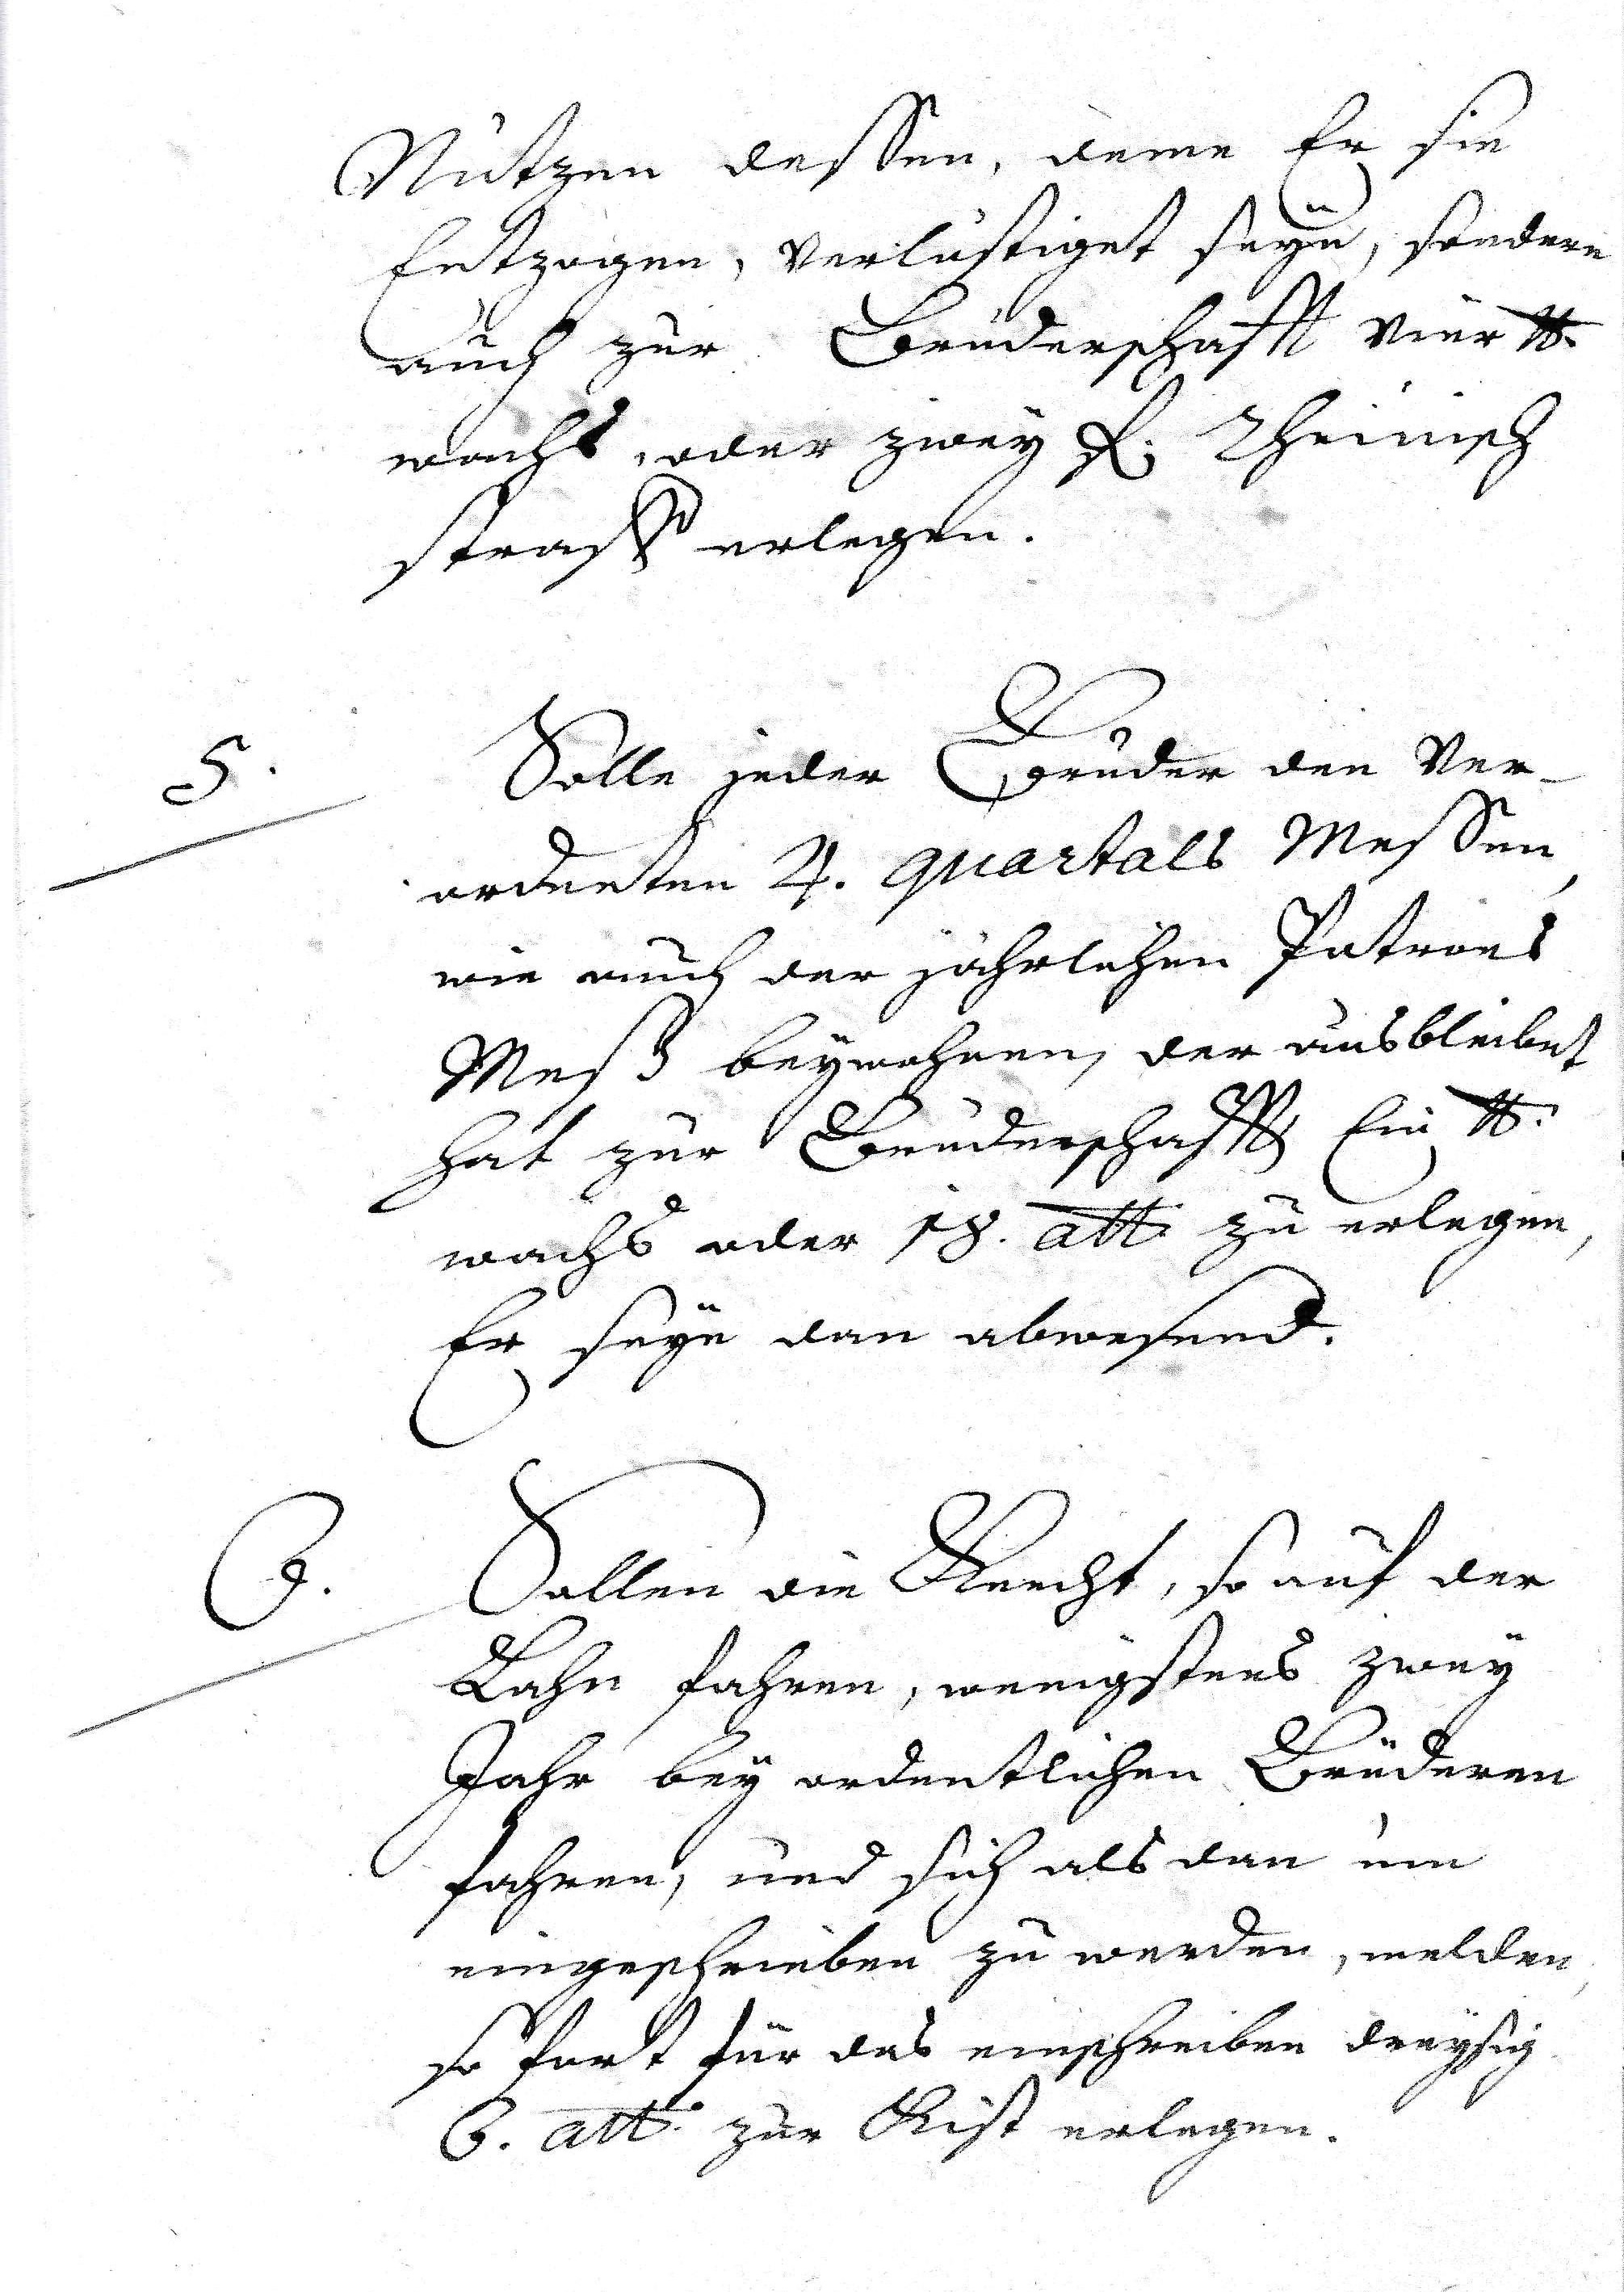 Nutzen dessen, deme Er sie
Entzogen, verlustiget seÿn, sondern
auch zur Bruderschafft vier ℔.
wachs, oder zweÿ fl. Rheinisch
straff erlegen.
5. Solle jeder Bruder den Ver-
ordneten 4. quartals Messen,
wie auch der jährlichen Patrons
Meß beÿwohnen, der ausbleibet
hat zur Bruderschafft Ein ℔.
wachs oder 18. alb. zu erlegen,
Er seÿe dan abwesend.
6. Sollen die Knecht, so auf der
Lahn fahren, wenigstens zweÿ
Jahr beÿ ordentlichen Brüderen
fahren, und sich als dan um
eingeschrieben zu werden, melden,
so fort für das einschreiben dreÿsig
6. alb. zur Kist erlegen.